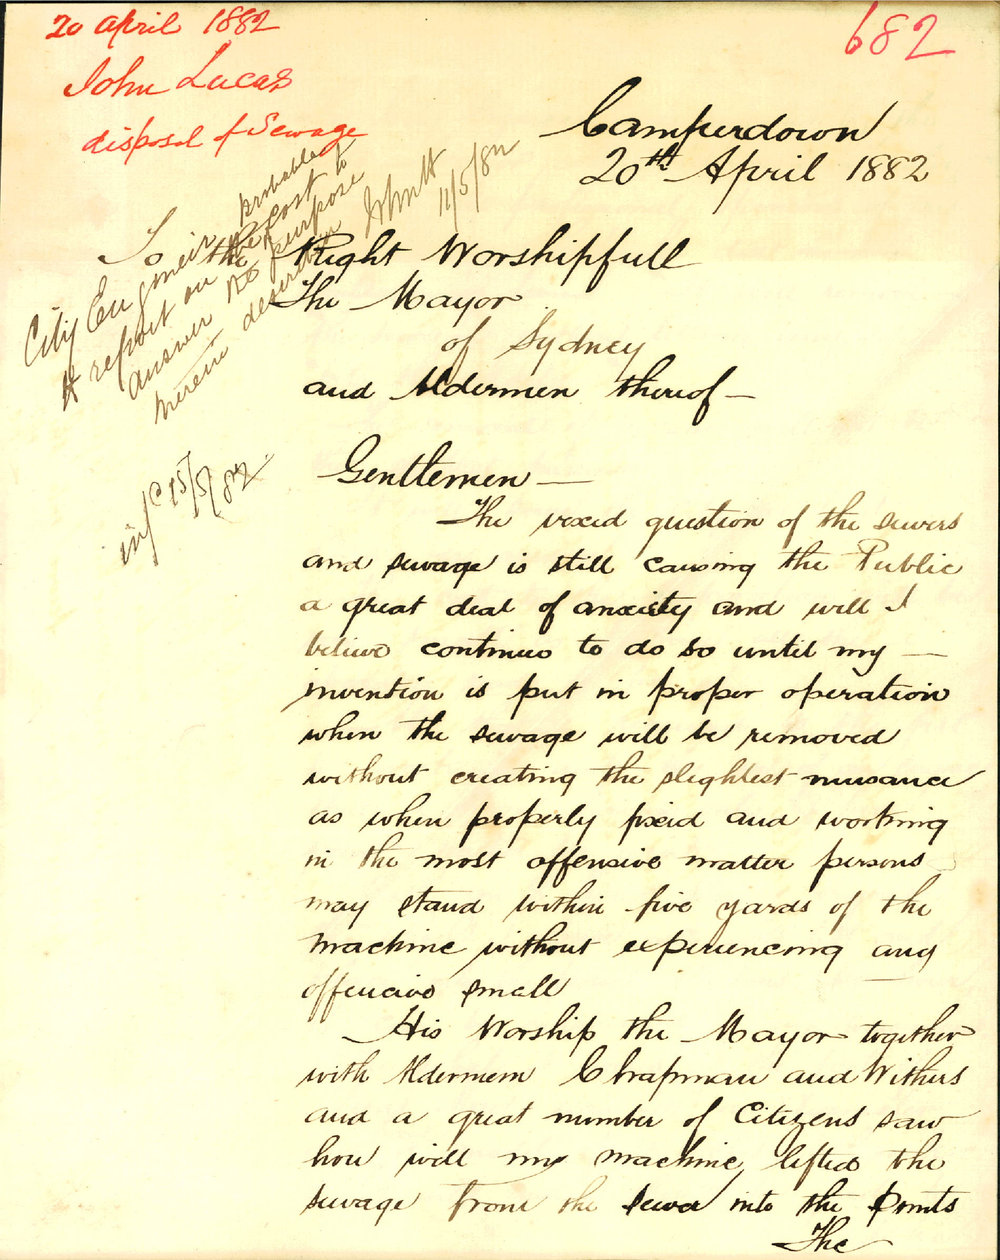 20 April 1882
John Lucas
disposal of Sewage
682
Camperdown
20th April 1882
To the Right Worshipfull
The Mayor
of Sydney
and Aldermen thereof —
City Engineir
to report on the probable
answer the purpose
herein
11/5/82
15/5/82
Gentlemen —
The vexed question of the sewers
and sewage is still causing the Public
a great deal of anxiety and will I
believe continue to do so until my —
invention is put in proper operation
when the sewage will be removed
without creating the slightest nusance
as when properly fixed and working
in the most offensive matter persons
may stand within five yards of the
machine without experiencing any
offencive small
His Worship the Mayor together
with Aldermem Chapman and Withers
and a great number of Citizens saw
how well my machine lifted the
sewage from the sewer into the punts
The